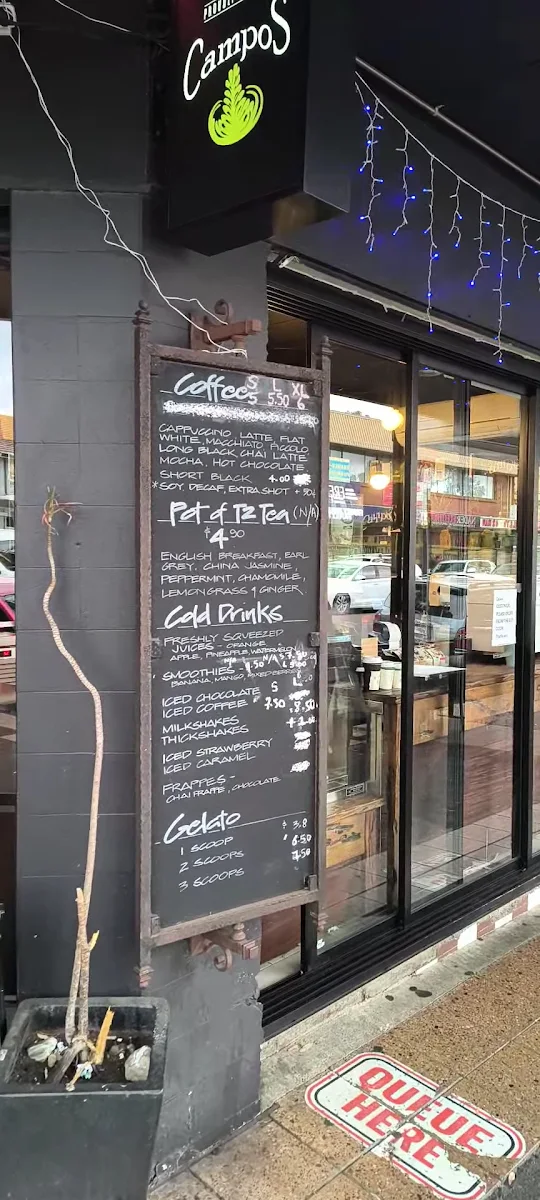 Campos
Coffee S L XL
5 5.50 6
CAPPUCCINO, LATTE, FLAT
WHITE, MACCHIATO, PICCOLO
LONG BLACK, CHAI LATTE
MOCHA, HOT CHOCOLATE
SHORT BLACK 4.00
*SOY, DECAF, EXTRA SHOT + 50¢
Pot of T2 Tea (N/A)
$4.90
ENGLISH BREAKFAST, EARL
GREY, CHINA JASMINE,
PEPPERMINT, CHAMOMILE,
LEMONGRASS & GINGER
Cold Drinks
FRESHLY SQUEEZED
JUICES - ORANGE
APPLE, PINEAPPLE, WATERMELON
SMOOTHIES -
BANANA, MANGO, MIXED BERRIES
ICED CHOCOLATE S L
ICED COFFEE 7.50 8.50
MILKSHAKES
THICKSHAKES
ICED STRAWBERRY
ICED CARAMEL
FRAPPES -
CHAI FRAPPE, CHOCOLATE
Gelato
1 SCOOP $3.8
2 SCOOPS 6.50
3 SCOOPS 7.50
QUEUE
HERE